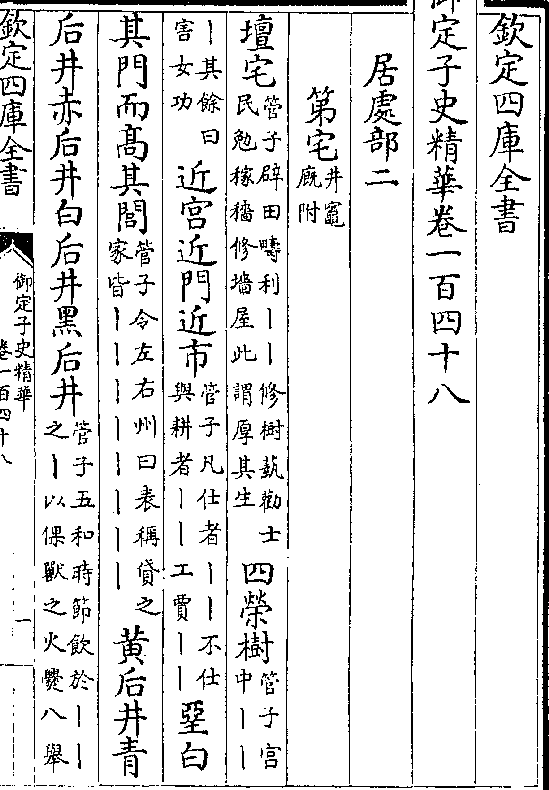 欽定四庫全書
御定子史精華卷一百四十八
居處部二
第宅井竈廐附
壇宅管子辟田疇利丨丨修樹蓺勸士民勉稼穡修墻屋此謂厚其生四榮樹管子宮中丨丨
丨其餘曰害女功近宮近門近市管子凡仕者丨丨不仕與耕者丨丨工賈丨丨堊白
其門而髙其閭管子令左右州曰表稱貸之家皆丨丨丨丨丨丨黄后井青
后井赤后井白后井黑后井管子五和時節飲於丨丨之丨以倮獸之火爨八舉
欽定四庫全書
御定子史精華
卷一百四十八
一